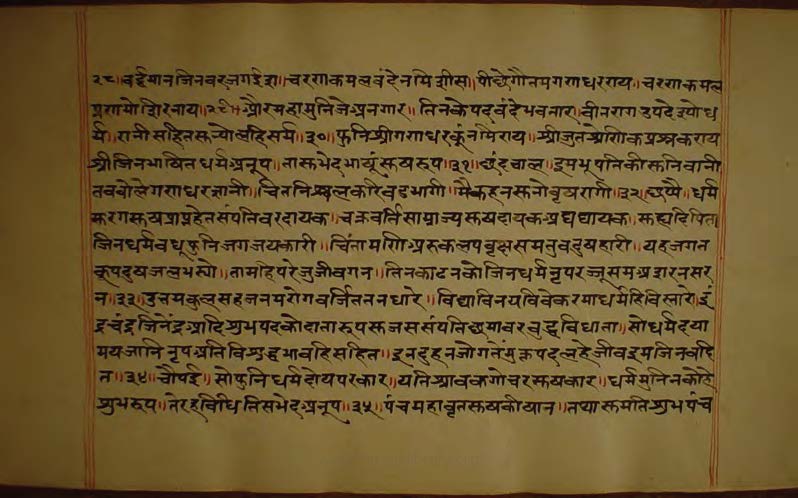 २८॥ वर्द्धमान जिनवर जगईश॥ चरणकमल वंदे नमि शीस॥ पीछे गौतम गणधरराय॥ चरणकमल
प्रणमो शिरनाय॥ २९॥ और महामुनि जे अनगार॥ तिनके पद वंदे भवतार॥ वीतराग उपदेश्यो ध
र्म॥ रानी सहित सुन्यो लहि सर्म॥ ३०॥ फुनि श्रीगणधर कूं नमि राय॥ श्रीजुत श्रेणिक प्रश्न कराय
श्रीजिनभाषित धर्म अनूप॥ तास भेद भाषूं सुखरूप॥ ३१॥ छंद चाल॥ इम भूपति की सुनि वानी
तब बोले गणधर ज्ञानी॥ चित निश्चल करि वडभागी॥ मैं कहन सुनो वृषरागी॥ ३२॥ छप्पै॥ धर्म
करग सुख प्राप्त हेत संपति वरदायक॥ चक्रवर्ति साम्राज्य सुखदायक अघघायक॥
जिनधर्म वधू फुनि जग जयकारी॥ चिंतामणि अरु कलपवृक्ष सम तुव दुखहारी॥ यह जगत
कूप दुखजल भर्यो॥ तामहि परे जु जीवगन॥ तिन काढन को जिनधर्म नृप रज्जू सम अशरन सर
न॥ ३३॥ उत्तम कुल सहजनम रोगवर्जित तन धारे॥ विद्या विनय विवेक रमा धर्महि विस्तारे॥ इं
द्र चंद्र जिनेंद्र आदि शुभपद को दाता रूप सुजस संपति छमा वर बुद्ध विधाता॥ सो धर्म दया
मय जानि नृप अति विशुद्ध भावहि सहित॥ इन दुहन जोग तें मुक्तपद लहे जीव इम जिन वदि
त॥ ३४॥ चौपई॥ सो फुनि धर्म दोय परकार॥ यति श्रावक गोचर सुखकार॥ धर्म मुनिनको है
शुभरूप॥ तेरहविधि तिस भेद अनूप॥ ३५॥ पंच महावृत सुख की खान॥ तथा सुमति शुभ पंच